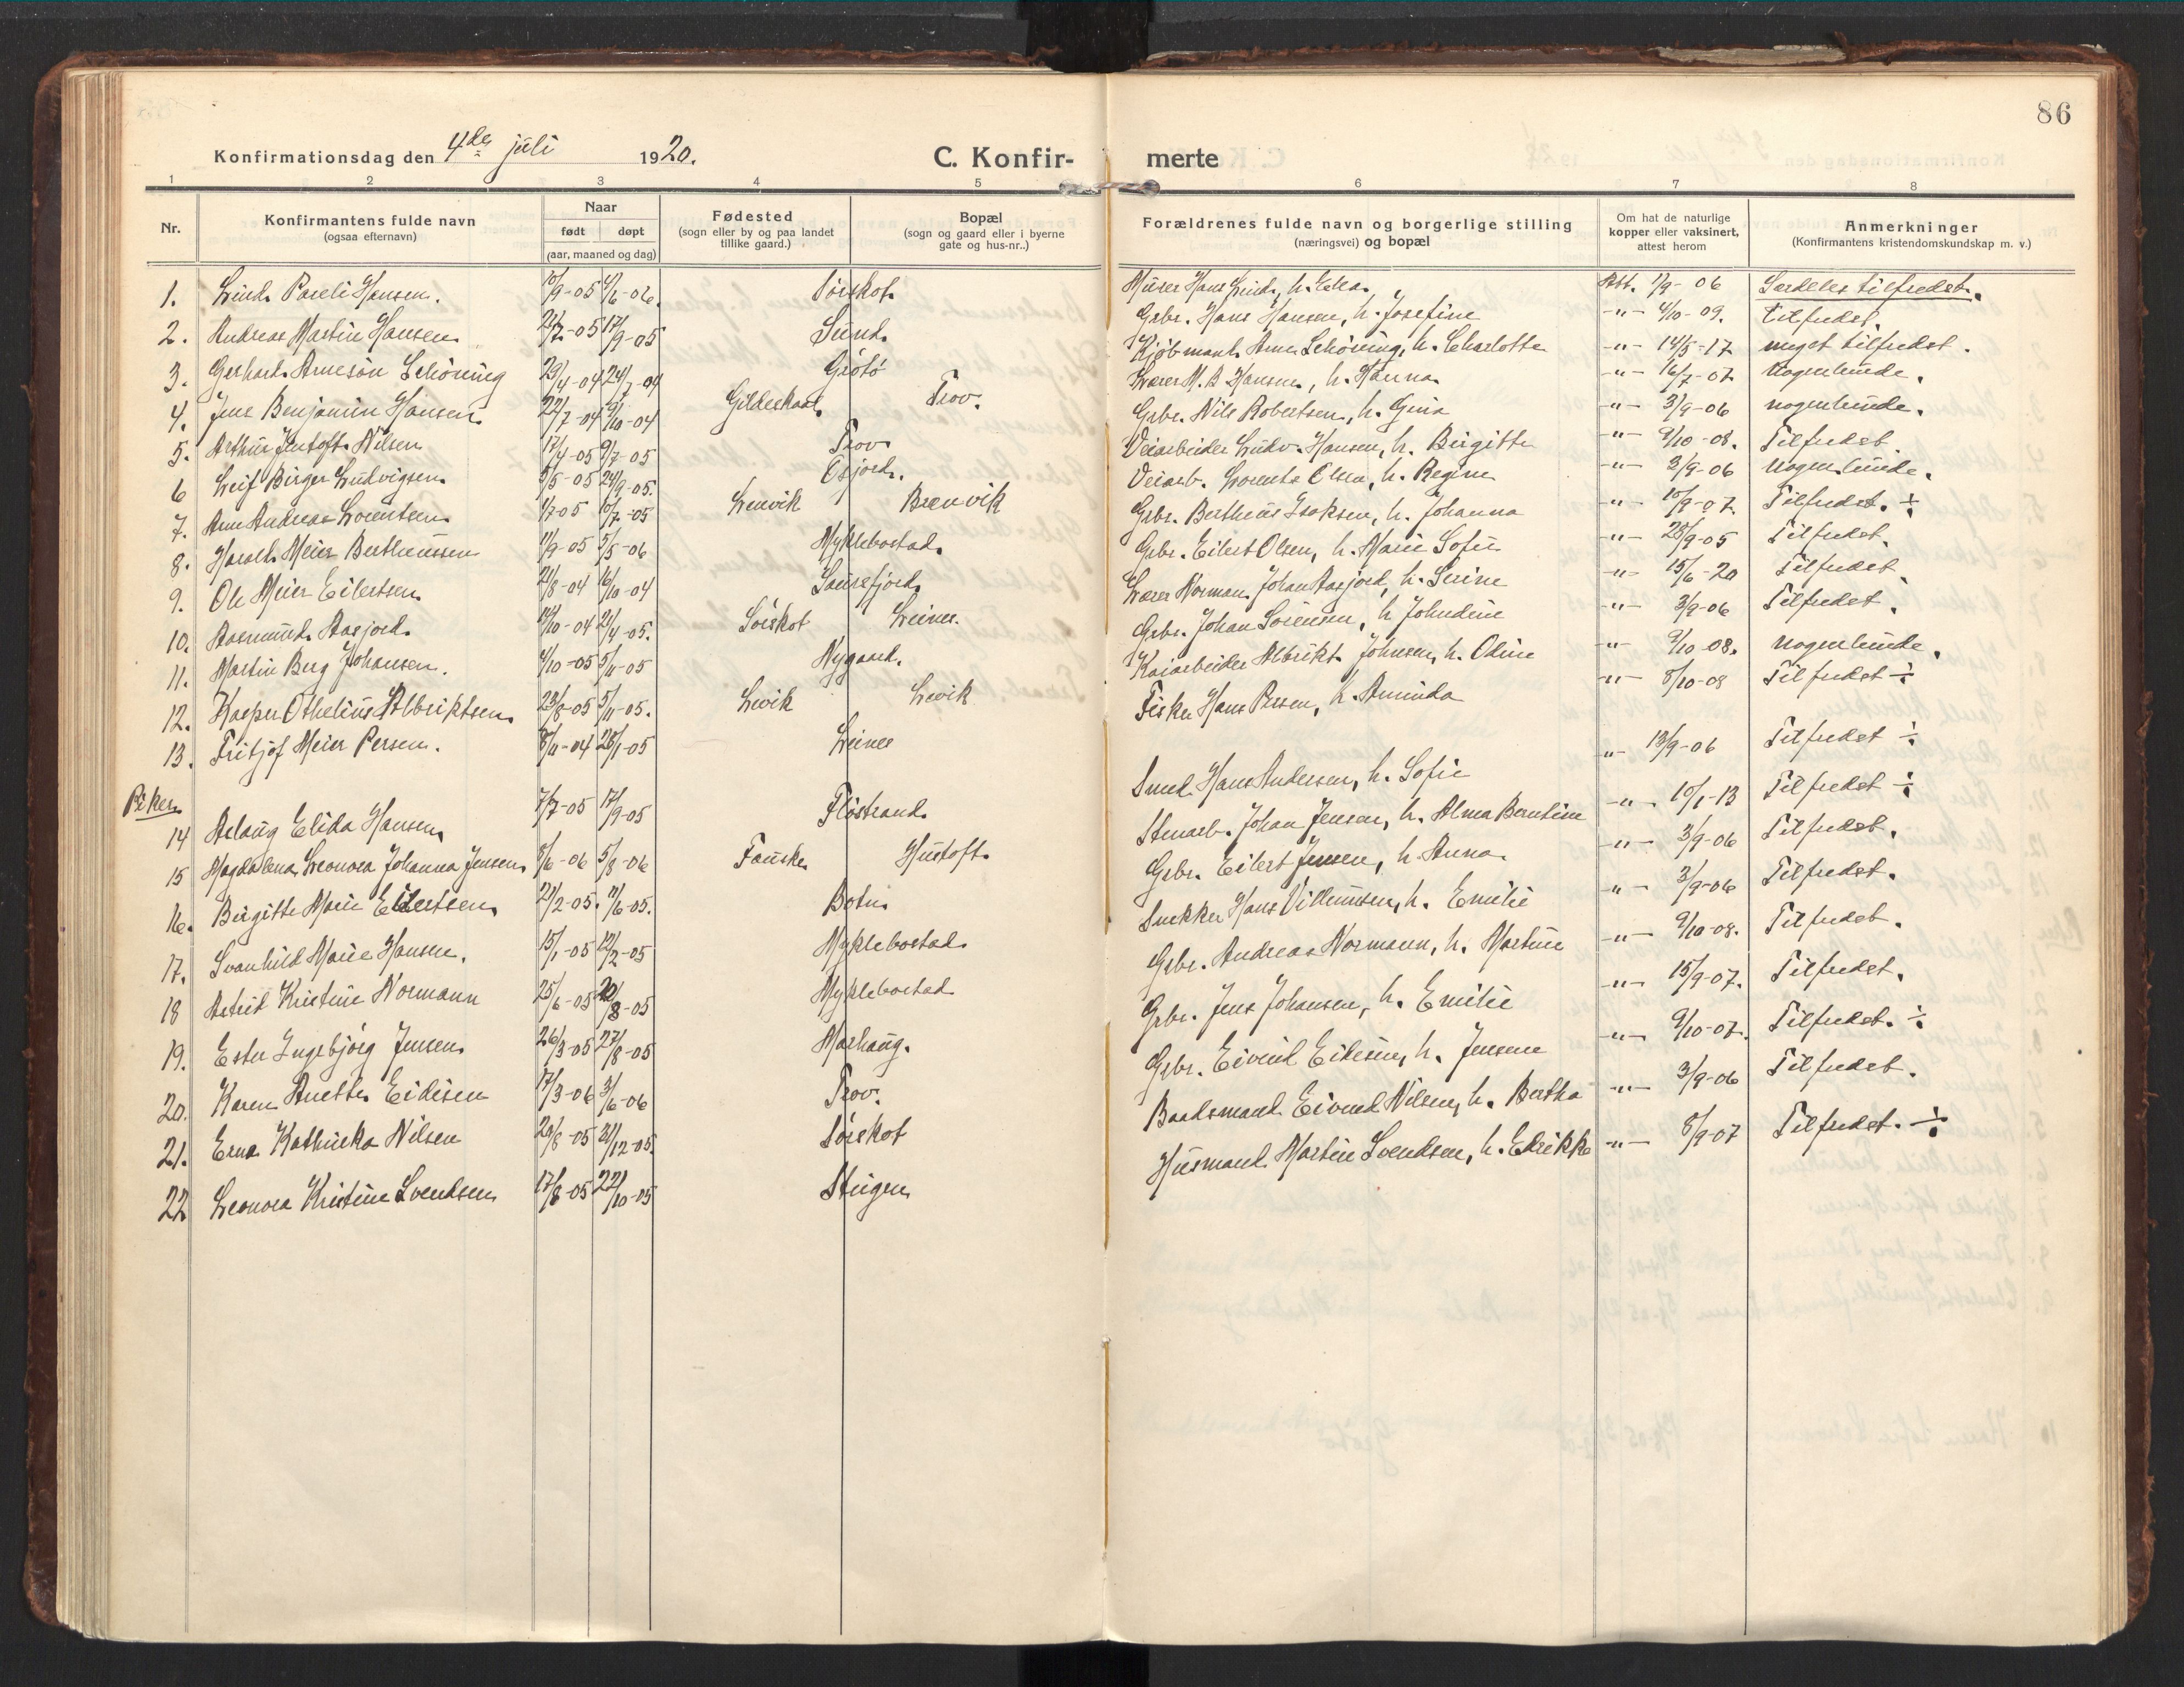 86
Konfirmationsdag den 4de juli 1920. C. Konfir- merte
1 2 3 4 5 6 7 8
Nr. Konfirmantens fulde navn (ogsaa efternavn) Naar født døpt (aar, maaned og dag) Fødested (sogn eller by og paa landet tillike gaard.) Bopæl (sogn og gaard eller i byerne gate og hus-nr..) Forældrenes fulde navn og borgerlige stilling (næringsvei) og bopæl Om hat de naturlige kopper eller vaksinert, attest herom Anmerkninger (Konfirmantens kristendomskundskap m. v.)
1. Lind Pareli Hansen. 10/9-05 4/6-06. Sørskot Murer Hans Lind, h. Att. 1/9-06 Serdeles tilfredst.
2. Andreas Martin Hansen 21/7-05 17/9-05 Sund Gbr. Hans Hansen, h. Josefine -"- 4/10-09. tilfredst.
3. Gerhard Arnesøn Schöning 29/4-04 24/7-04 Grøtø Kjøbmand Arne Schöning, h. Charlotte -"- 14/5-17 meget tilfredst.
4. Jens Benjamin Hansen 22/7-04 9/10-04 Gildeskaal Trov. Lærer M. B Hansen, h. Hanna -"- 16/7-07 Nogenlunde.
5. Arthur Jentoft Nilsen 17/4-05 9/7-05 Trov Gbr. Nils Robertsen, h. Gina -"- 3/9-06 nogenlunde.
6 Leif Birger Ludvigsen 5/5-05 24/9-05. Osjord. Veiarbeider Ludv. Hansen, h. Birgitte -"- 9/10-08. Tilfredst
7. Arne Andreas Lorentsen 1/7-05 10/7-05 Lenvik Brenvik Veiarb. Lorents Olsen, h. Regine -"- 3/9-06 Nogenlunde.
8. Harald Meier Bertheussen 11/9-05 5/5-06 Myklebostad Gbr. Bertheus Isaksen, h. Johanna -"- 10/9-07. Tilfredst. ÷
9. Ole Meier Eilertsen 21/8-04 16/10-04 Laursfjord Gbr. Eilert Olsen, h. Marie Sofie -"- 28/9-05 Tilfredst.
10. Aasmund Aasjord 14/10-04 21/4-05. Sørskot Leines. Lærer Norman Johan Aasjord, h. Serine -"- 15/6-20 Tilfredst.
11. Martin Berg Johansen. 4/10-05 5/11-05 Nygaard. Gbr. Johan Sørensen, h Johndine -"- 3/9-06 Tilfredst.
12. Kasper Othelius Albriktsen 23/8-05 5/11-05. Levik Levik Kaiarbeider Albrikt Johnsen, h. Odine -"- 9/10-08. Nogenlunde.
13. Fritjof Meier Persen. 8/11-04 28/1-05 Leines Fisker Hans Persen, h. Aminda -"- 8/10-08 Tilfredst ÷
Piker
14 Aslaug Elida Hansen 7/7-05 17/9-05 Fløstrand Smed Hans Andersen, h. Sofie -"- 13/9-06 Tilfredst ÷
15 Magdalena Leonora Johanna Jensen 8/6-06 5/8-06 Fauske Hustoft Stenarb. Johan Jensen, h. Alma Berntine -"- 10/1-13 Tilfredst ÷
16. Birgitte Marie Eilertsen 21/2-05. 11/6-05. Botn Gbr. Eilert Jensen, h. Anna -"- 3/9-06 Tilfredst.
17. Svanhild Marie Hansen. 15/1-05 12/2-05 Myklebostad Snekker Hans Villumsen, h. Emilie -"- 3/9-06 Tilfredst.
18 Astrid Kristine Normann 25/6-05 20/8-05 Myklebostad Gbr. Andreas Normann, h. Martine -"- 9/10-08. Tilfredst.
19. Ester Ingebjørg Jensen 26/3-05 27/8-05 Marhaug. Gbr. Jens Johansen, h. Emilie -"- 15/9-07. Tilfredst.
20. Karen Anette Eidisen 17/3-06 3/6-06 Trov. Gbr. Eivind Eidisen, h. Jensine -"- 9/10-07. Tilfredst. ÷
21. Erna Kathinka Nilsen 20/8-05 31/12-05. Sørskot Baadsmand Eivind Nilsen, h. Bertha -"- 3/9-06 Tilfredst.
22 Leonora Kristine Svendsen 17/8-05 22/10-05 Steigen Husmand Martin Svendsen, h. Edrikke -"- 8/9-07 Tilfredst. ÷